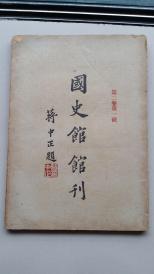 國史館館刊
蔣中正題
第二卷第一號